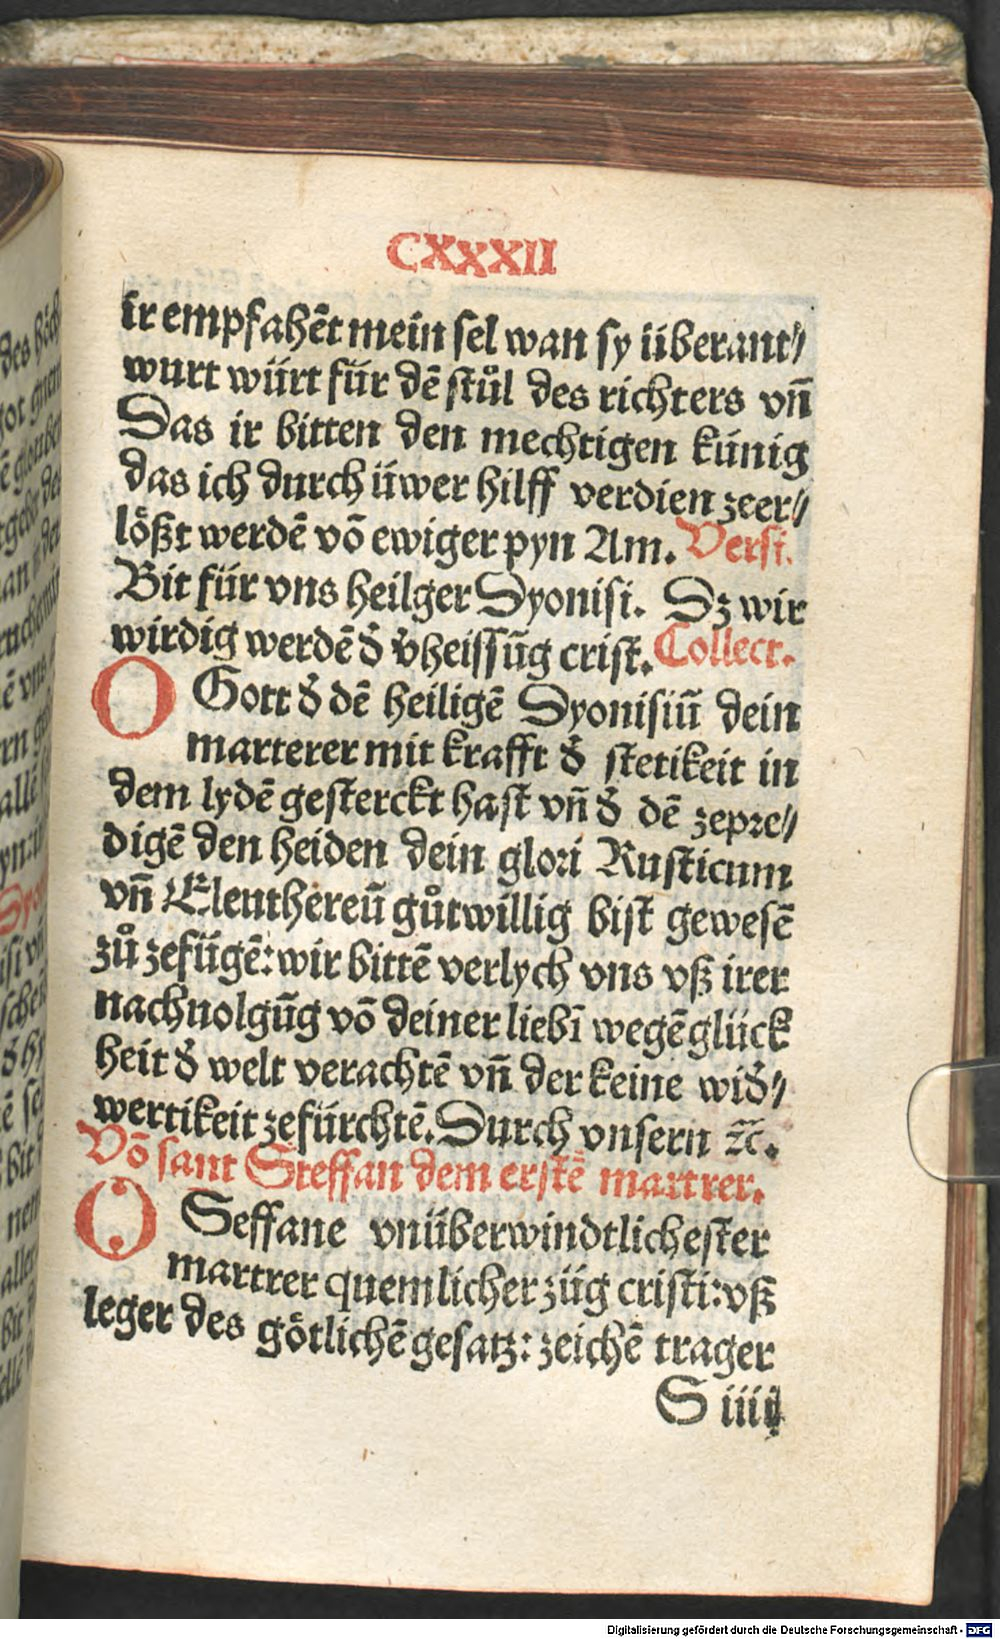 CXXXII
ir empfahēt mein sel wan sy überant⸗
wurt würt für dē stůl des richters vn̄
Das ir bitten den mechtigen künig
das ich durch üwer hilff verdien zeer⸗
lößt werdē vō ewiger pyn Am. Versi.
Bit für vns heilger Dyonisi. Dz wir
wirdig werdē d̕ v̕heissūg crist. Collect.
O Gott d̕ dē heiligē Dyonisiū dein
marterer mit krafft d̕ stetikeit in
dem lydē gesterckt hast vn̄ d̕ dē zepre⸗
digē den heiden dein glori Rusticum
vn̄ Eleuthereū gůtwillig bist gewesē
zů zefügē: wir bittē verlych vns vß irer
nachuolgūg vō deiner liebī wegē glück
heit d̕ welt verachtē vn̄ der keine wid̕⸗
wertikeit zefürchtē. Durch vnsern ⁊c̄.
Vō sant Steffan dem erstē martrer.
O Steffane vnüberwindtlichester
martrer quemlicher züg cristi: vß
leger des götlichē gesatz: zeichē trager
S iiij
Digitalisierung gefördert durch die Deutsche Forschungsgemeinschaft - DFG